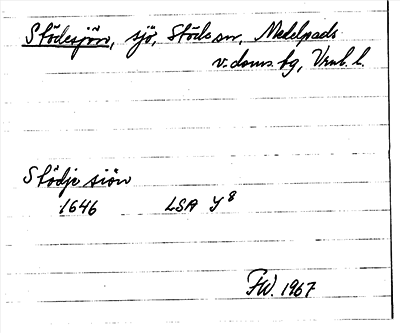 Stödesjön, sjö, Stöds sn, Medelpads
v. doms. tg, Vrnl. l.
Stödje siön
1646 LSA Y 8
FW. 1967